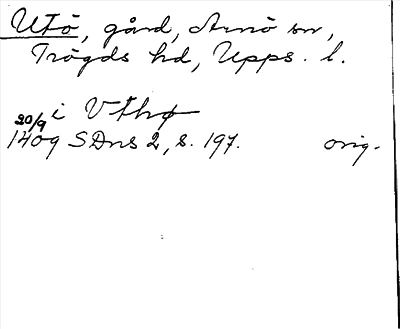 Utö, gård, Arnö sn,
Trögds hd, Upps. l.
i Vthø
20/9
1409 SDns 2, s. 197. orig.